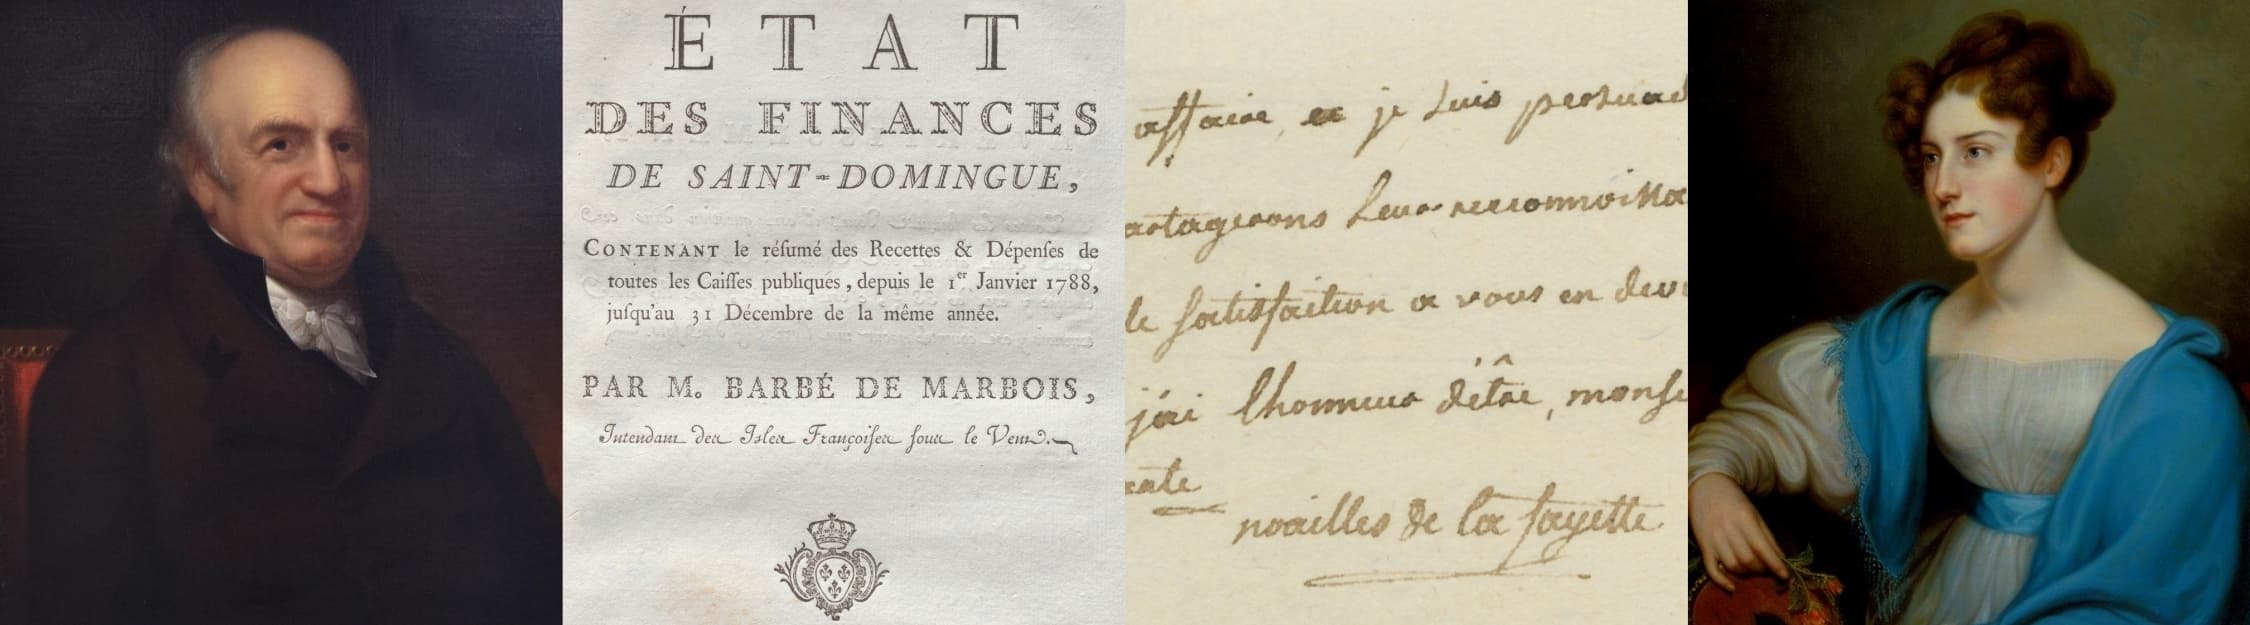 ÉTAT
DES FINANCES
DE SAINT-DOMINGUE,
CONTENANT le réſumé des Recettes & Dépenſes de
toutes les Caiſſes publiques, depuis le 1er Janvier 1788,
juſqu'au 31 Décembre de la même année.
PAR M. BARBÉ DE MARBOIS,
Intendant des Isles Françoiſes ſous le Vent.
affaire, et je suis persuad
artagerons leur reconnoissa
de satisfaction a vous en devo
jai lhonneur dêtre, monsi
noailles de la fayette